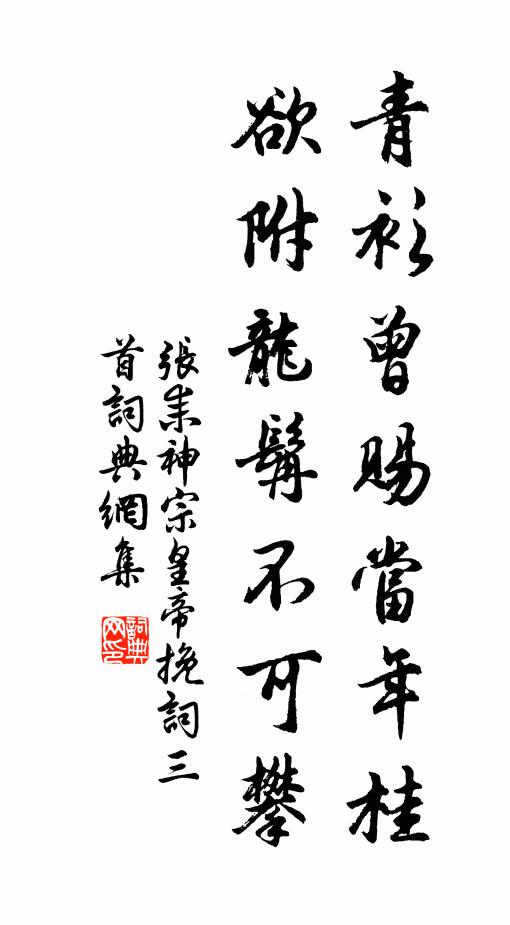 青衫曾賜當年桂
欲附龍髯不可攀
張耒神宗皇帝挽詞三
首詞典網集
詞典
网印